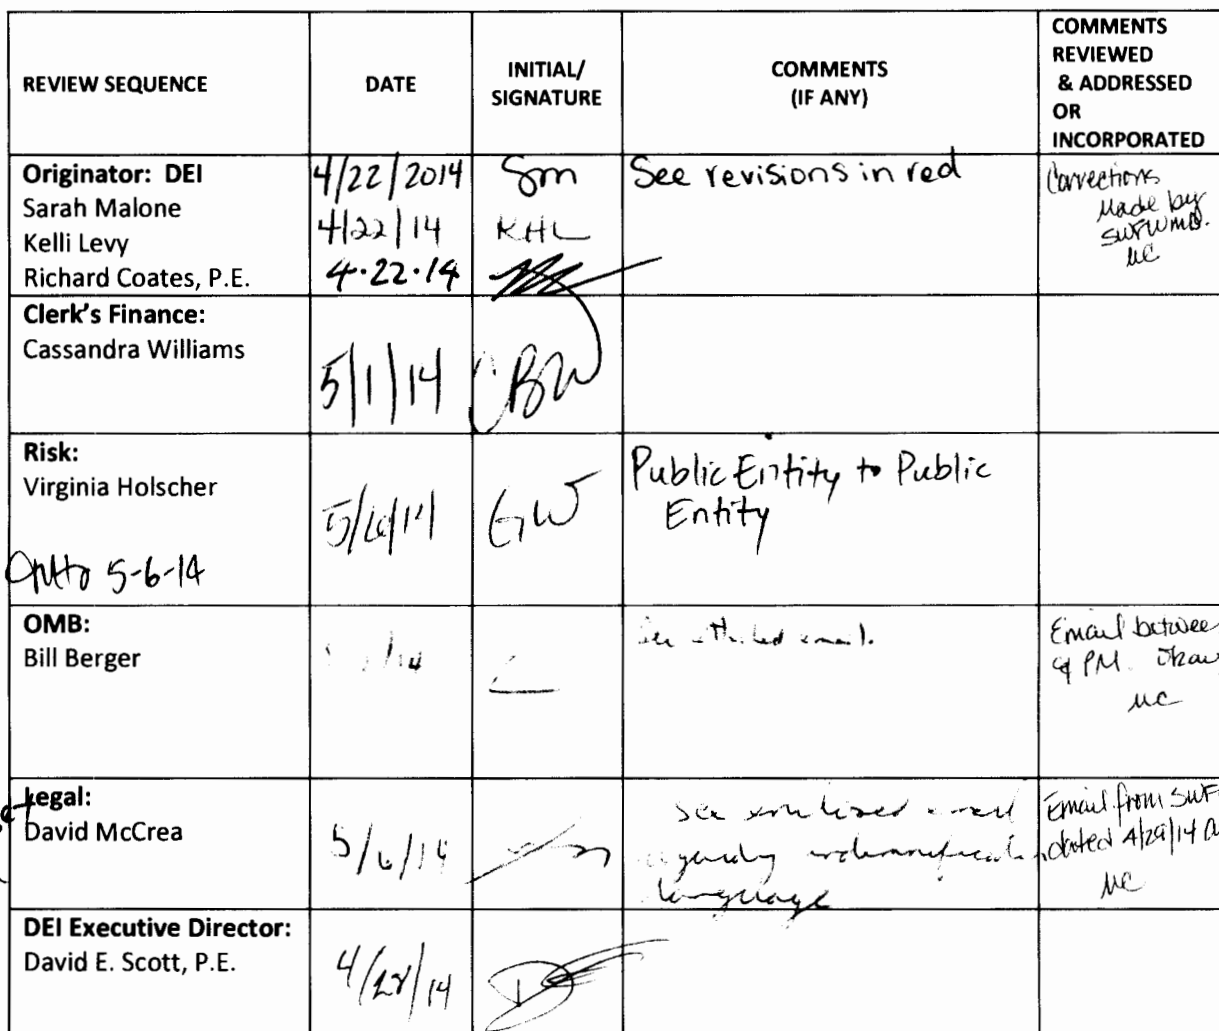 REVIEW SEQUENCE
DATE
INITIAL/
SIGNATURE
COMMENTS
(IF ANY)
COMMENTS
REVIEWED
& ADDRESSED
OR
INCORPORATED
Originator: DEI
Sarah Malone
Kelli Levy
Richard Coates, P.E.
4/22/2014
4/22/14
4·22·14
Sm
KHL
See revisions in red
Corrections
Made by
SWFWMD.
MC
Clerk's Finance:
Cassandra Williams
5/1/14
CBW
Risk:
Virginia Holscher
5-6-14
5/6/14
GW
Public Entity to Public
Entity
OMB:
Bill Berger
/14
See attached email.
Email betwee
PM. Okay
MC
Legal:
David McCrea
5/6/14
See email
indemnification
language
Email from SWF
dated 4/29/14
MC
DEI Executive Director:
David E. Scott, P.E.
4/28/14